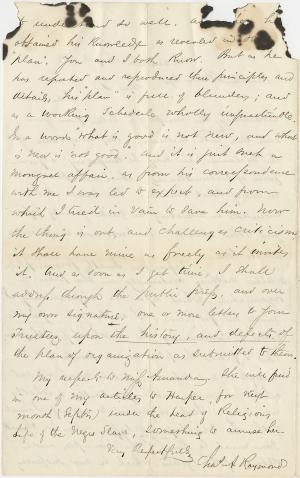 I understand so well. as he
obtained his Knowledge as revealed in
plan". You and I both Know. But as he
has repeated and reproduced these principles and
details, his "plan" is full of blunders; and
as a working Schedule wholly impracticable.
In a word "what is good is not new, and what
is new is not good." and it is just such a
mongrel affair, as from his correspondence
with me I was led to expect, and from
which I tried in vain to save him. Now
the thing is out, and challenges criticism
it shall have mine as freely as it invites
it. And as soon as I get time, I shall
address through the public press, and over
my own signature, one or more letters to your
Trustees upon the history, and defects of
the plan of organization as submitted to them.
My respects to Miss Amanda. She will find
in one of my articles to Harper, for next
month (Septr) under the head of Religious
Life of the Negro Slave, something to amuse her
Very Respectfully
Chas. A Raymond